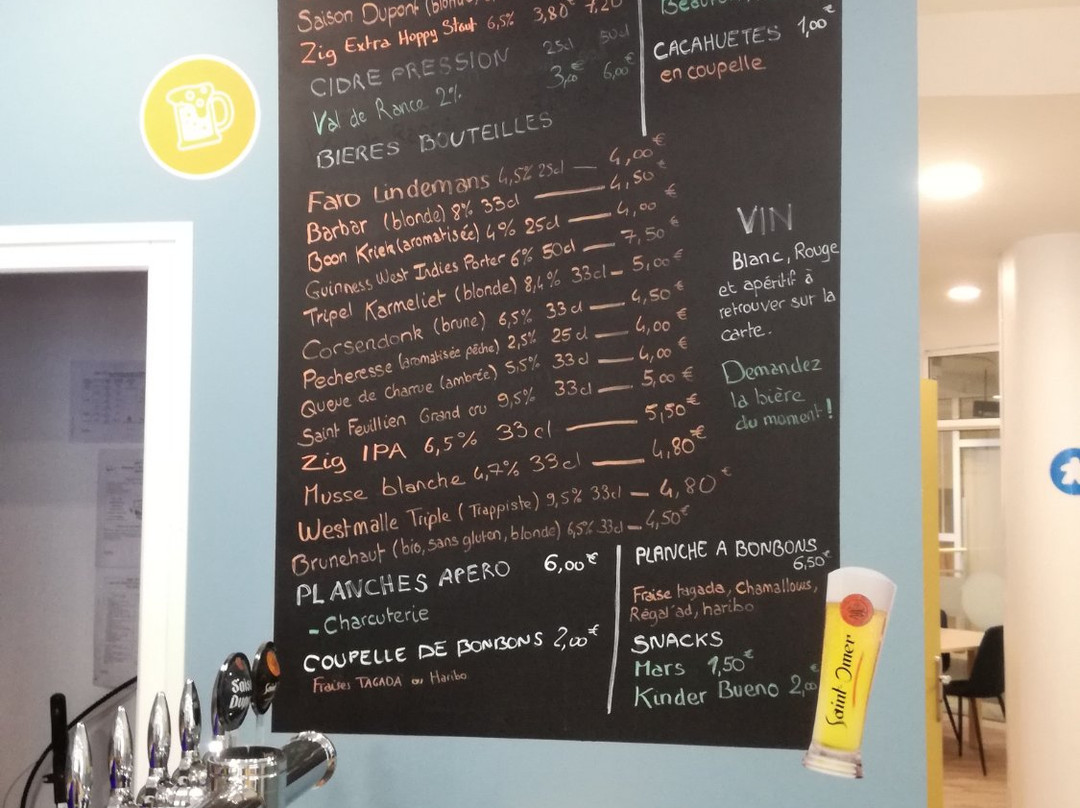 Saison Dupont (blonde)
Zig Extra Hoppy Stout 6,5% 3,80€ 7,20
CIDRE PRESSION 25cl 50cl
Val de Rance 2% 3,00€ 6,00€
BIERES BOUTEILLES
Faro Lindemans 4,5% 25cl — 4,00€
Barbar (blonde) 8% 33cl — 4,50€
Boon Kriek (aromatisée) 4% 25cl — 4,00€
Guinness West Indies Porter 6% 50cl — 7,50€
Tripel Karmeliet (blonde) 8,4% 33cl — 5,00€
Corsendonk (brune) 6,5% 33cl — 4,50€
Pecheresse (aromatisée pêche) 2,5% 25cl — 4,00€
Queue de Charrue (ambrée) 5,5% 33cl — 4,00€
Saint Feuillien Grand cru 9,5% 33cl — 5,00€
Zig IPA 6,5% 33cl — 5,50€
Musse blanche 4,7% 33cl — 4,80€
Westmalle Triple (Trappiste) 9,5% 33cl — 4,80€
Brunehaut (bio, sans gluten, blonde) 6,5% 33cl — 4,50€
PLANCHES APERO 6,00€
- Charcuterie
COUPELLE DE BONBONS 2,00€
Fraises TAGADA ou Haribo
CACAHUETES 1,00€
en coupelle
VIN
Blanc, Rouge
et apéritif à
retrouver sur la
carte.
Demandez
la bière
du moment!
PLANCHE A BONBONS
6,50€
Fraise tagada, Chamallows,
Régal'ad, haribo
SNACKS
Mars 1,50€
Kinder Bueno 2,00
Saint-Omer